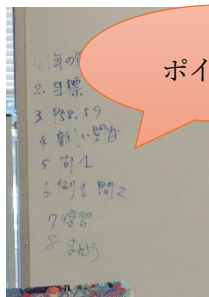 ポイ
2. 目標
3 P58. 59
4 新しい
5 問1
6 例1 問2
7 復習
8 まとめ